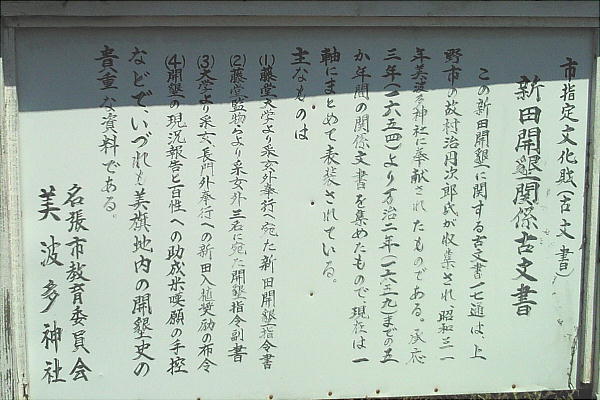 市指定文化財(古文書)
新田開墾関係古文書
この新田開墾に関する古文書一七通は、上
野市の故村治円次郎氏が収集され、昭和三一
年美波多神社に奉献されたものである。承応
三年(一六五四)より万治二年(一六五九)までの五
か年間の関係文書を集めたもので、現在は一
軸にまとめて表装されている。
主なものは
(1)藤堂大学より采女外奉行へ宛た新田開墾指令書
(2)藤堂監物らより采女外三名に宛た開墾指令副書
(3)大学より采女、長門外奉行への新田入植奨励の布令
(4)開墾の現況報告と百姓への助成米嘆願の手控
などで、いづれも美旗地内の開墾史の
貴重な資料である。
名張市教育委員会
美波多神社